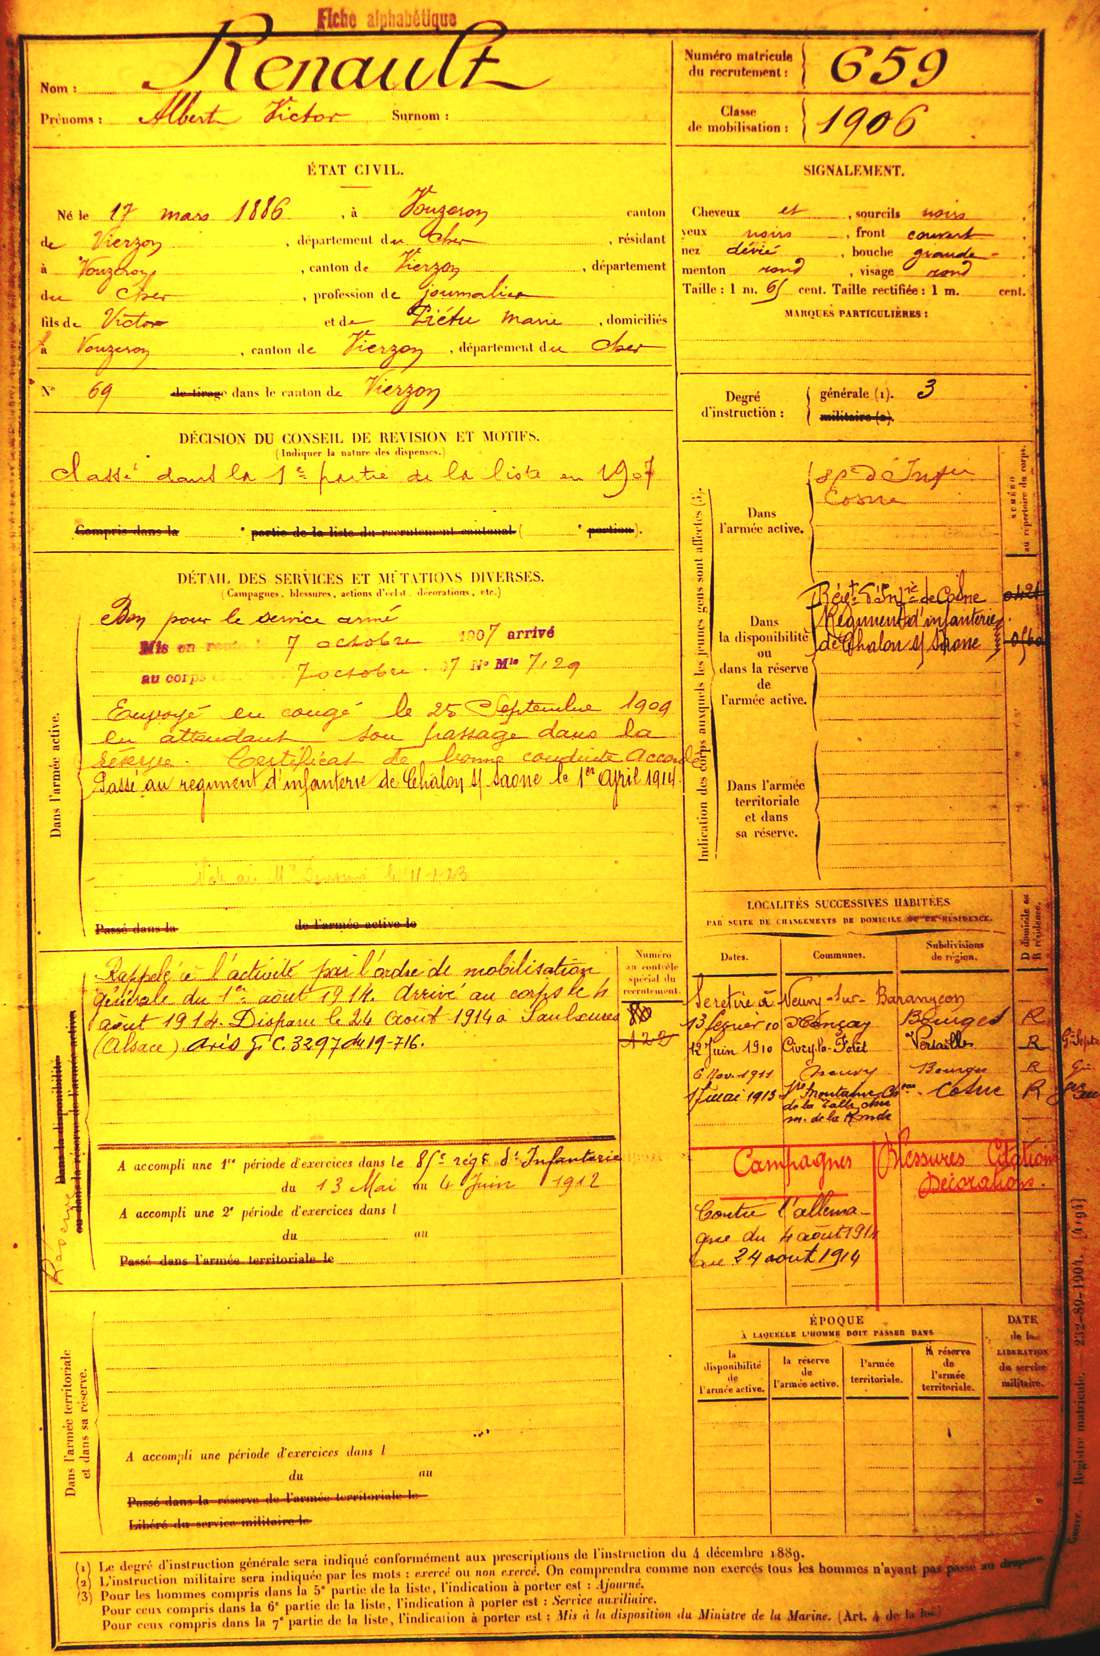 Fiche alphabétique
Nom : Renault
Prénoms : Albert Victor Surnom :
Numéro matricule
du recrutement : 659
Classe
de mobilisation : 1906
ÉTAT CIVIL.
Né le 17 mars 1886, à Vouzeron canton
de Vierzon, département du Cher, résidant
à Vouzeron, canton de Vierzon, département
du Cher, profession de journalier
fils de Victor et de Piétu Marie, domiciliés
à Vouzeron, canton de Vierzon, département du Cher
N° 69 de tirage dans le canton de Vierzon
SIGNALEMENT.
Cheveux et, sourcils noirs
yeux noirs, front couvert
nez dévié, bouche grande
menton rond, visage rond
Taille : 1 m. 65 cent. Taille rectifiée : 1 m. cent.
MARQUES PARTICULIÈRES :
Degré
d'instruction :
générale (1). 3
militaire (2).
DÉCISION DU CONSEIL DE REVISION ET MOTIFS.
(Indiquer la nature des dispenses.)
Classé dans la 1e partie de la liste en 1907
Compris dans la e partie de la liste du recrutement cantonal ( e portion).
DÉTAIL DES SERVICES ET MUTATIONS DIVERSES.
(Campagnes, blessures, actions d'éclat, décorations, etc.)
Dans l'armée active.
Bon pour le service armé
Mis en route le 7 octobre 1907 arrivé
au corps 7 octobre 07 No Mle 7129
Envoyé en congé le 25 Septembre 1909
en attendant son passage dans la
réserve. Certificat de bonne conduite Accordé
Passé au régiment d'infanterie de Chalon s/ Saone le 1er Avril 1914
Passé dans la de l'armée active le
Indication des corps auxquels les jeunes gens sont affectés (3).
NUMÉRO
au répertoire du corps.
Dans
l'armée active.
85e d'Infie
Cosne
Dans
la disponibilité
ou
dans la réserve
de
l'armée active.
Régt d'Infie de Cosne
Régiment d'infanterie
de Chalon s/ Saone
Dans l'armée
territoriale
et dans
sa réserve.
LOCALITÉS SUCCESSIVES HABITÉES
PAR SUITE DE CHANGEMENTS DE DOMICILE OU DE RÉSIDENCE.
Dates. Communes. Subdivisions
de région.
D domicile ou
R résidence.
Se retire à Neuvy-sur-Barangeon
13 février 10 Nançay Bourges R
12 Juin 1910 Civry-la-Forêt Versailles R
6 Nov. 1911 Neuvy Bourges R
17 mai 1913 Cosne R
Dans la disponibilité
ou dans la réserve de l'armée active
Réserve
Numéro
au contrôle
spécial du
recrutement.
Rappelé à l'activité par l'ordre de mobilisation
générale du 1er août 1914. Arrivé au corps le 4
août 1914. Disparu le 24 août 1914 à Saulxures
(Alsace) avis g. C. 3297 du 19-7-16.
A accompli une 1re période d'exercices dans le 85e régt d'Infanterie
du 13 Mai au 4 Juin 1912
A accompli une 2e période d'exercices dans l
du au
Passé dans l'armée territoriale le
Campagnes
Blessures Citations
Décorations.
Contre l'allema-
gne du 4 août 1914
au 24 août 1914
Dans l'armée territoriale
et dans sa réserve.
A accompli une période d'exercices dans l
du au
Passé dans la réserve de l'armée territoriale le
Libéré du service militaire le
ÉPOQUE
À LAQUELLE L'HOMME DOIT PASSER DANS
la
disponibilité
de
l'armée active.
la réserve
de
l'armée active.
l'armée
territoriale.
la réserve
de
l'armée
territoriale.
DATE
de la
LIBÉRATION
du service
militaire.
Registre matricule. — 232-89-1904. [4194]
(1) Le degré d'instruction générale sera indiqué conformément aux prescriptions de l'instruction du 4 décembre 1889.
(2) L'instruction militaire sera indiquée par les mots : exercé ou non exercé. On comprendra comme non exercés tous les hommes n'ayant pas passé au drapeau.
(3) Pour les hommes compris dans la 5e partie de la liste, l'indication à porter est : Ajourné.
Pour ceux compris dans la 6e partie de la liste, l'indication à porter est : Service auxiliaire.
Pour ceux compris dans la 7e partie de la liste, l'indication à porter est : Mis à la disposition du Ministre de la Marine. (Art. 4 de la loi.)